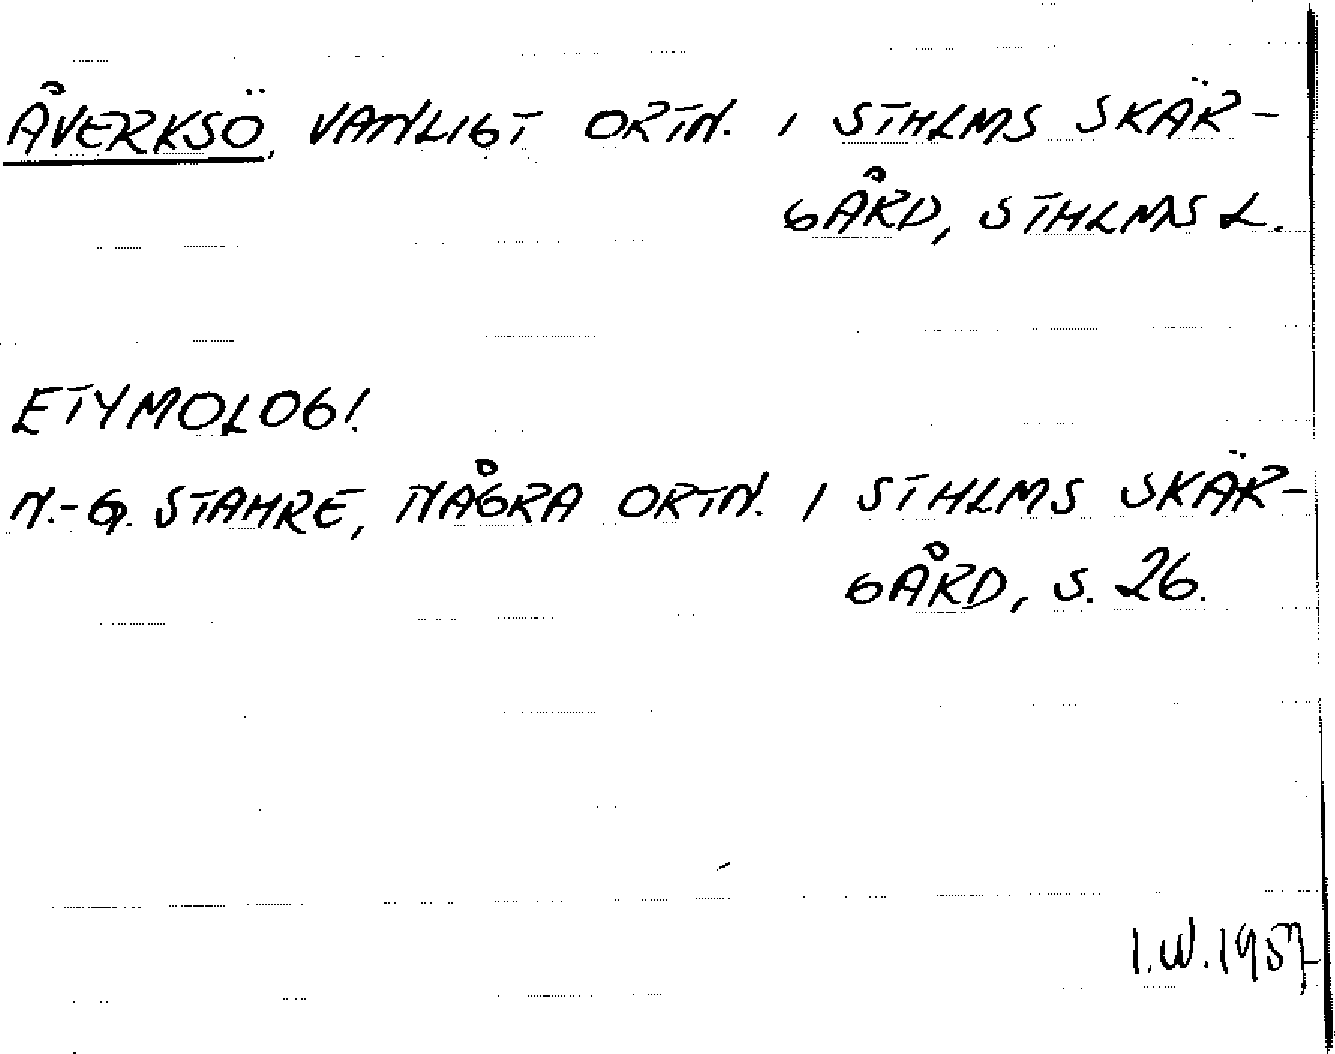 ÅVERKSÖ, VANLIGT ORTN. I STHLMS SKÄR-
GÅRD, STHLMS L.
ETYMOLOGI.
N.-G. STAHRE, NÅGRA ORTN. I STHLMS SKÄR-
GÅRD, S. 26.
I.W. 1957